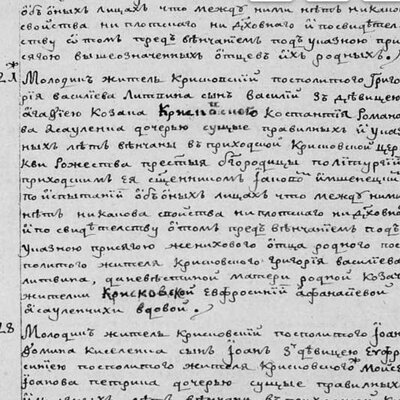 ѡбъ ѡныхъ лицахъ что между ними нѣтъ никаков
свойства ни плотскаго ни дховнаго и посвидетел
ству ѡ томъ предъ вѣнчаниемъ подъ указною при
сягою вышеозначенныхъ отцевъ ихъ родныхъ.
27 Молодикъ житель Крисковскій посполитого Григо
рія василіева Литвина сынъ василій зъ дѣвицею
агафіею козака Крисковского Костантія Романо
ва Асауленка дочерью сущые правилныхъ и указ
ныхъ лѣтъ вѣнчаны въ приходской Крисковской цер
кви рожества престыя бгородицы по литургіи
приходскимъ ея сщенникомъ Іаковомъ
по испытаніи ѡбъ ѡныхъ лицахъ что между ними
нѣтъ никакова свойства ни плотскаго ни дховно
и по свидетелству ѡ томъ предъ вѣнчаніемъ подъ
указною присягою женихового отца родного пос
политого жителя Крисковского григорія василіева
литвина, а невѣстиной матери родной козач
жителки Крисковской евфросиніи афанасіевой
Асауленчихи вдовой.
28 Молодикъ житель Крисковскій посполитого Іоан
Киселенка сынъ Іоанъ зъ дѣвицею евфро
синіею посполитого жителя Крисковского Моисея
Іоанова петрика дочерью сущые правилныхъ